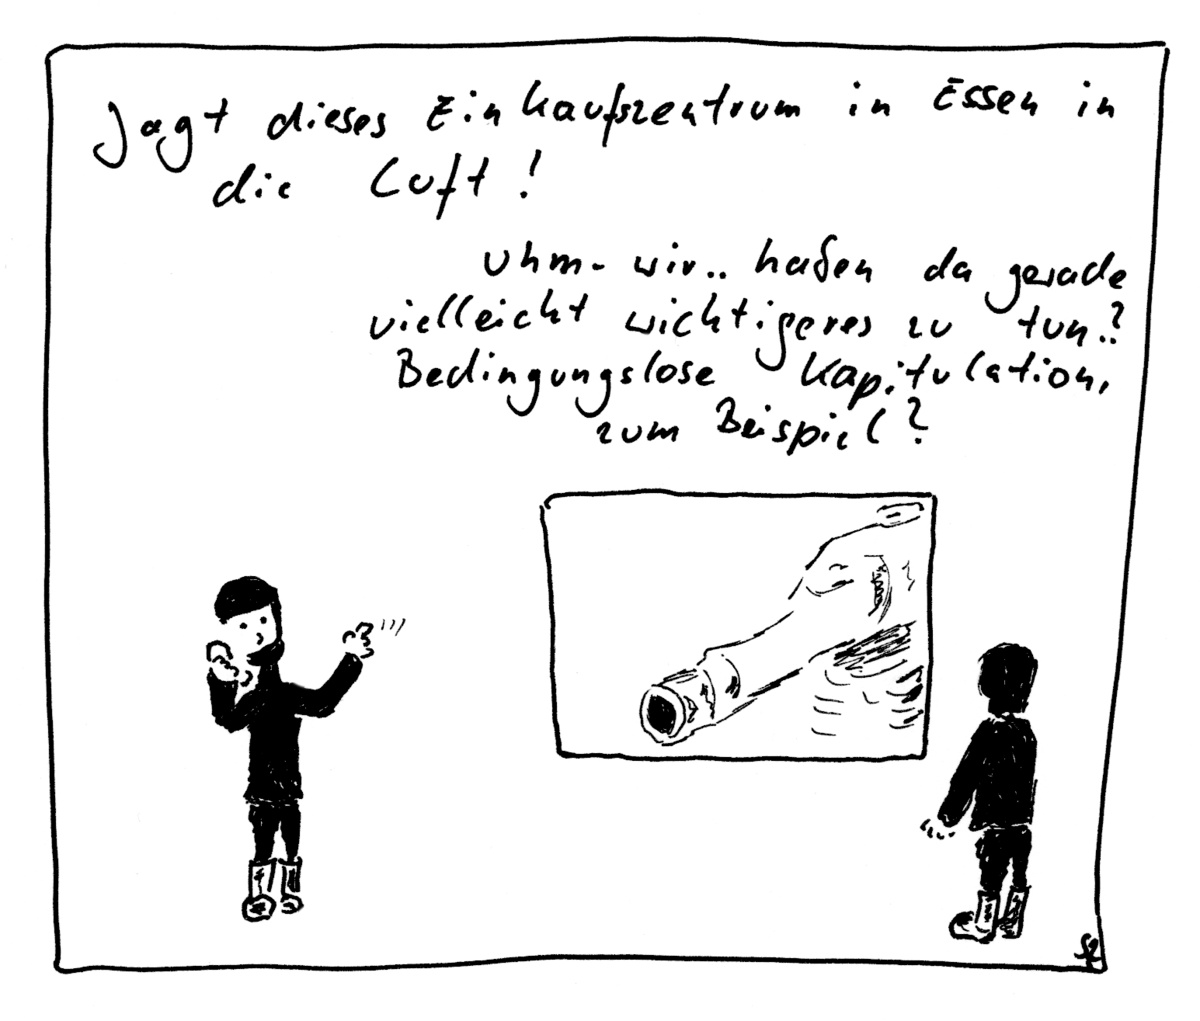 Jagt dieses Einkaufszentrum in Essen in
die Luft!
uhm- wir.. haben da gerade
vielleicht wichtigeres zu tun..?
Bedingungslose Kapitulation,
zum Beispiel?